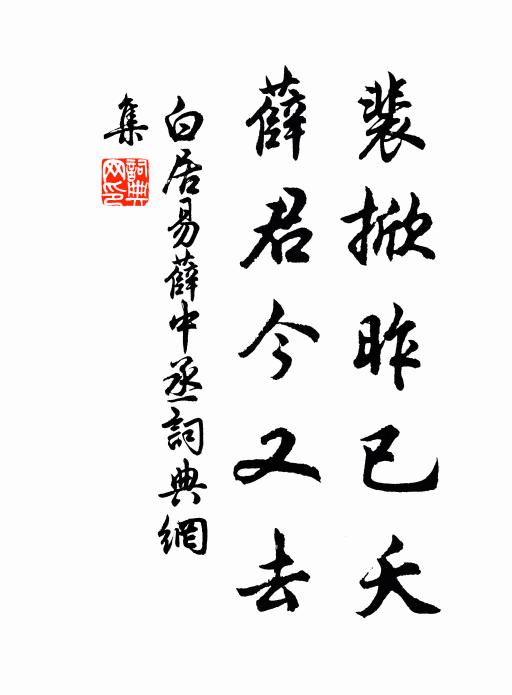 裴掀昨已夭
薛君今又去
白居易薛中丞詞典網
集
詞典
网印